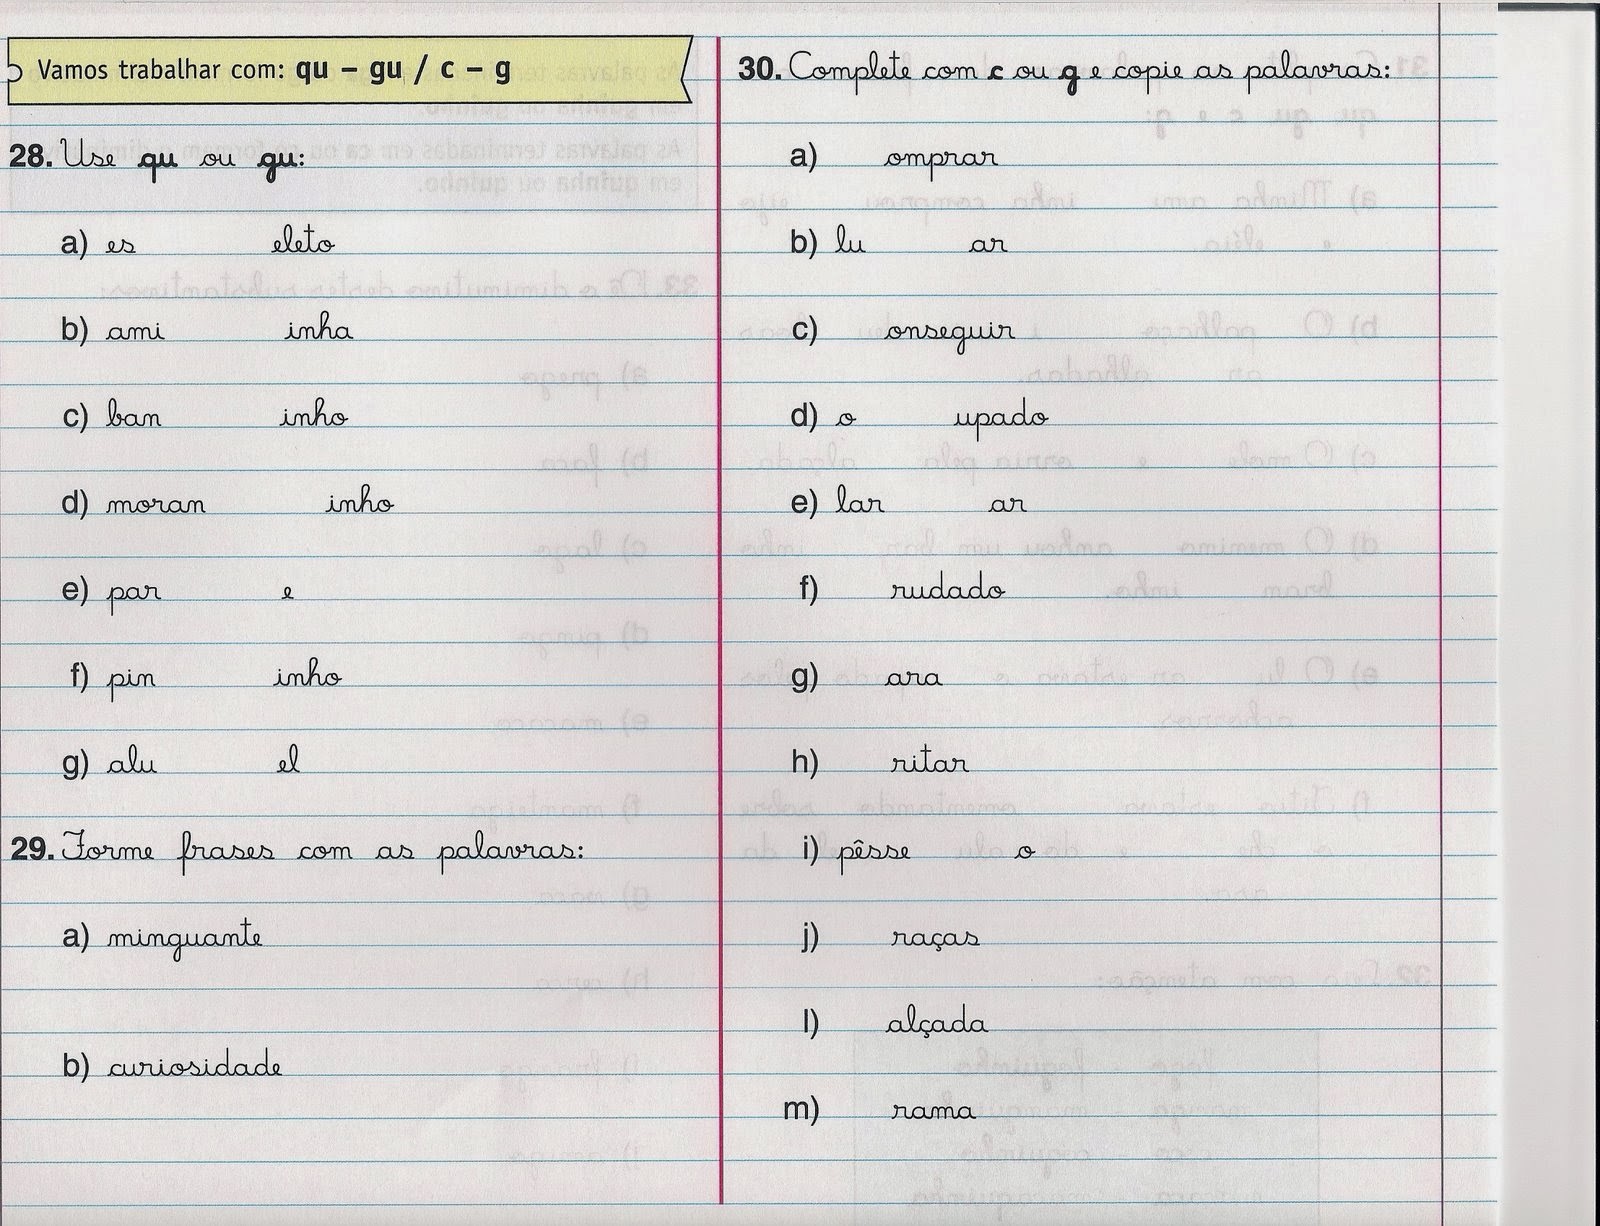 Vamos trabalhar com: qu – gu / c – g
28. Use qu ou gu:
a) es eleto
b) ami inha
c) ban inho
d) moran inho
e) par e
f) pin inho
g) alu el
29. Forme frases com as palavras:
a) minguante
b) curiosidade
30. Complete com c ou g e copie as palavras:
a) omprar
b) lu ar
c) onseguir
d) o upado
e) lar ar
f) rudado
g) ara
h) ritar
i) pêsse o
j) raças
l) alçada
m) rama